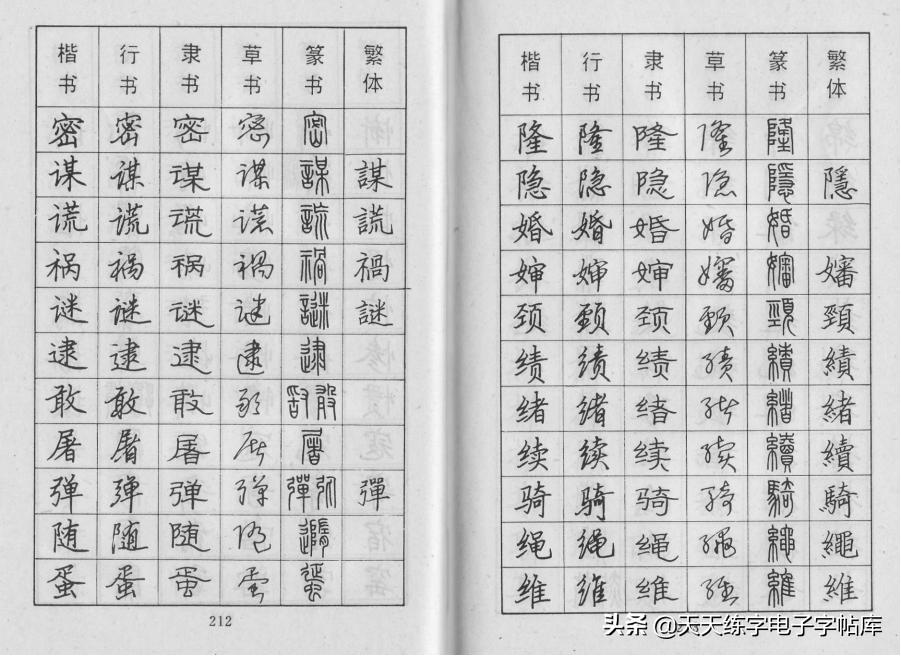 楷书 行书 隶书 草书 篆书 繁体
密 密 密 密 密
谋 谋 谋 谋 謀 謀
谎 谎 谎 谎 謊 謊
祸 禍 祸 禍 禍 禍
谜 谜 谜 谜 謎 謎
逮 逮 逮 逮 逮
敢 敢 敢 敢 敢 敢
屠 屠 屠 屠 屠
弹 弹 弹 弹 彈 彈
随 随 随 随 隨
蛋 蛋 蛋 蛋 蛋
212
楷书 行书 隶书 草书 篆书 繁体
隆 隆 隆 隆 隆
隐 隐 隐 隐 隱 隱
婚 婚 婚 婚 婚
婶 婶 婶 嬸 嬸 嬸
颈 頸 颈 頸 頸 頸
绩 绩 绩 績 績 績
绪 绪 绪 绪 緒 緒
续 续 续 续 續 續
骑 骑 骑 骑 騎 騎
绳 绳 绳 绳 繩 繩
维 维 维 维 維 維
头条 @天天练字电子字帖库